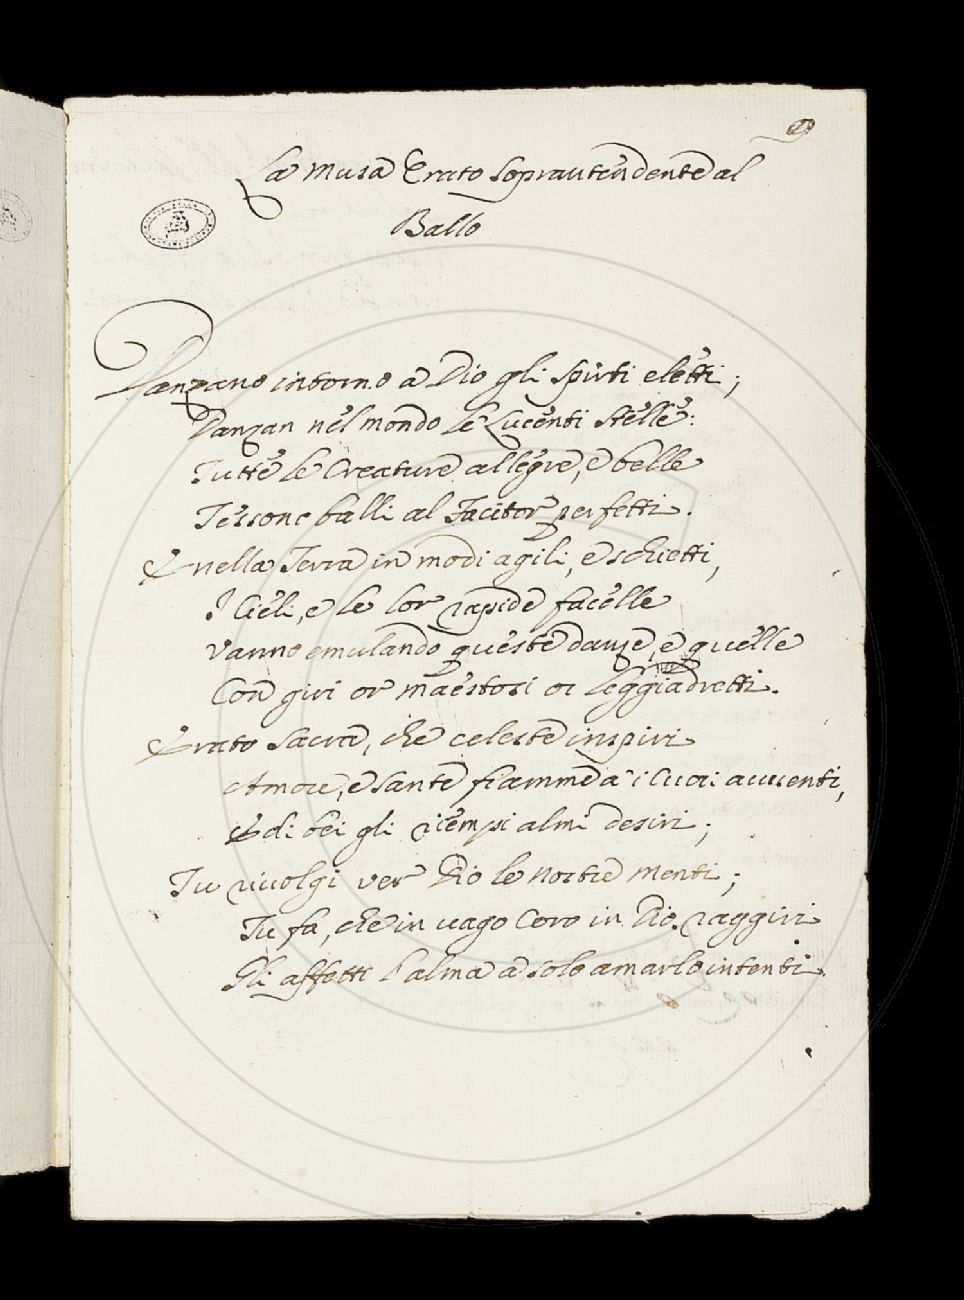 La Musa Erato soprantendente al
Ballo
Danzano intorno a Dio gli spirti eletti;
Danzan nel mondo le Lucenti stelle:
Tutte le Creature allegre, e belle
Tessono balli al Facitor perfetti.
E nella Terra in modi agili, e schietti,
I Cieli, e le lor rapide facelle
Vanno emulando queste danze, e quelle
Con giri or maestosi or leggiadretti.
Erato sacra, che celeste inspiri
Amore, e sante fiamme a i Cuori avventi,
E di bei gli riempi almi desiri;
Tu rivolgi ver Dio le nostre menti;
Tu fa, che in vago Coro in Dio raggiri
Gli affetti l'alma a solo amarlo intenti.